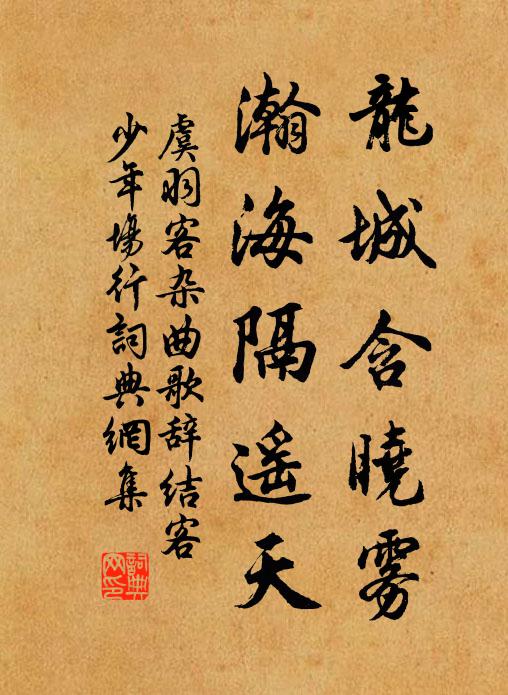 龍城含曉雾
瀚海隔遥天
虞羽客杂曲歌辞结客
少年場行詞典網集
詞典
网印